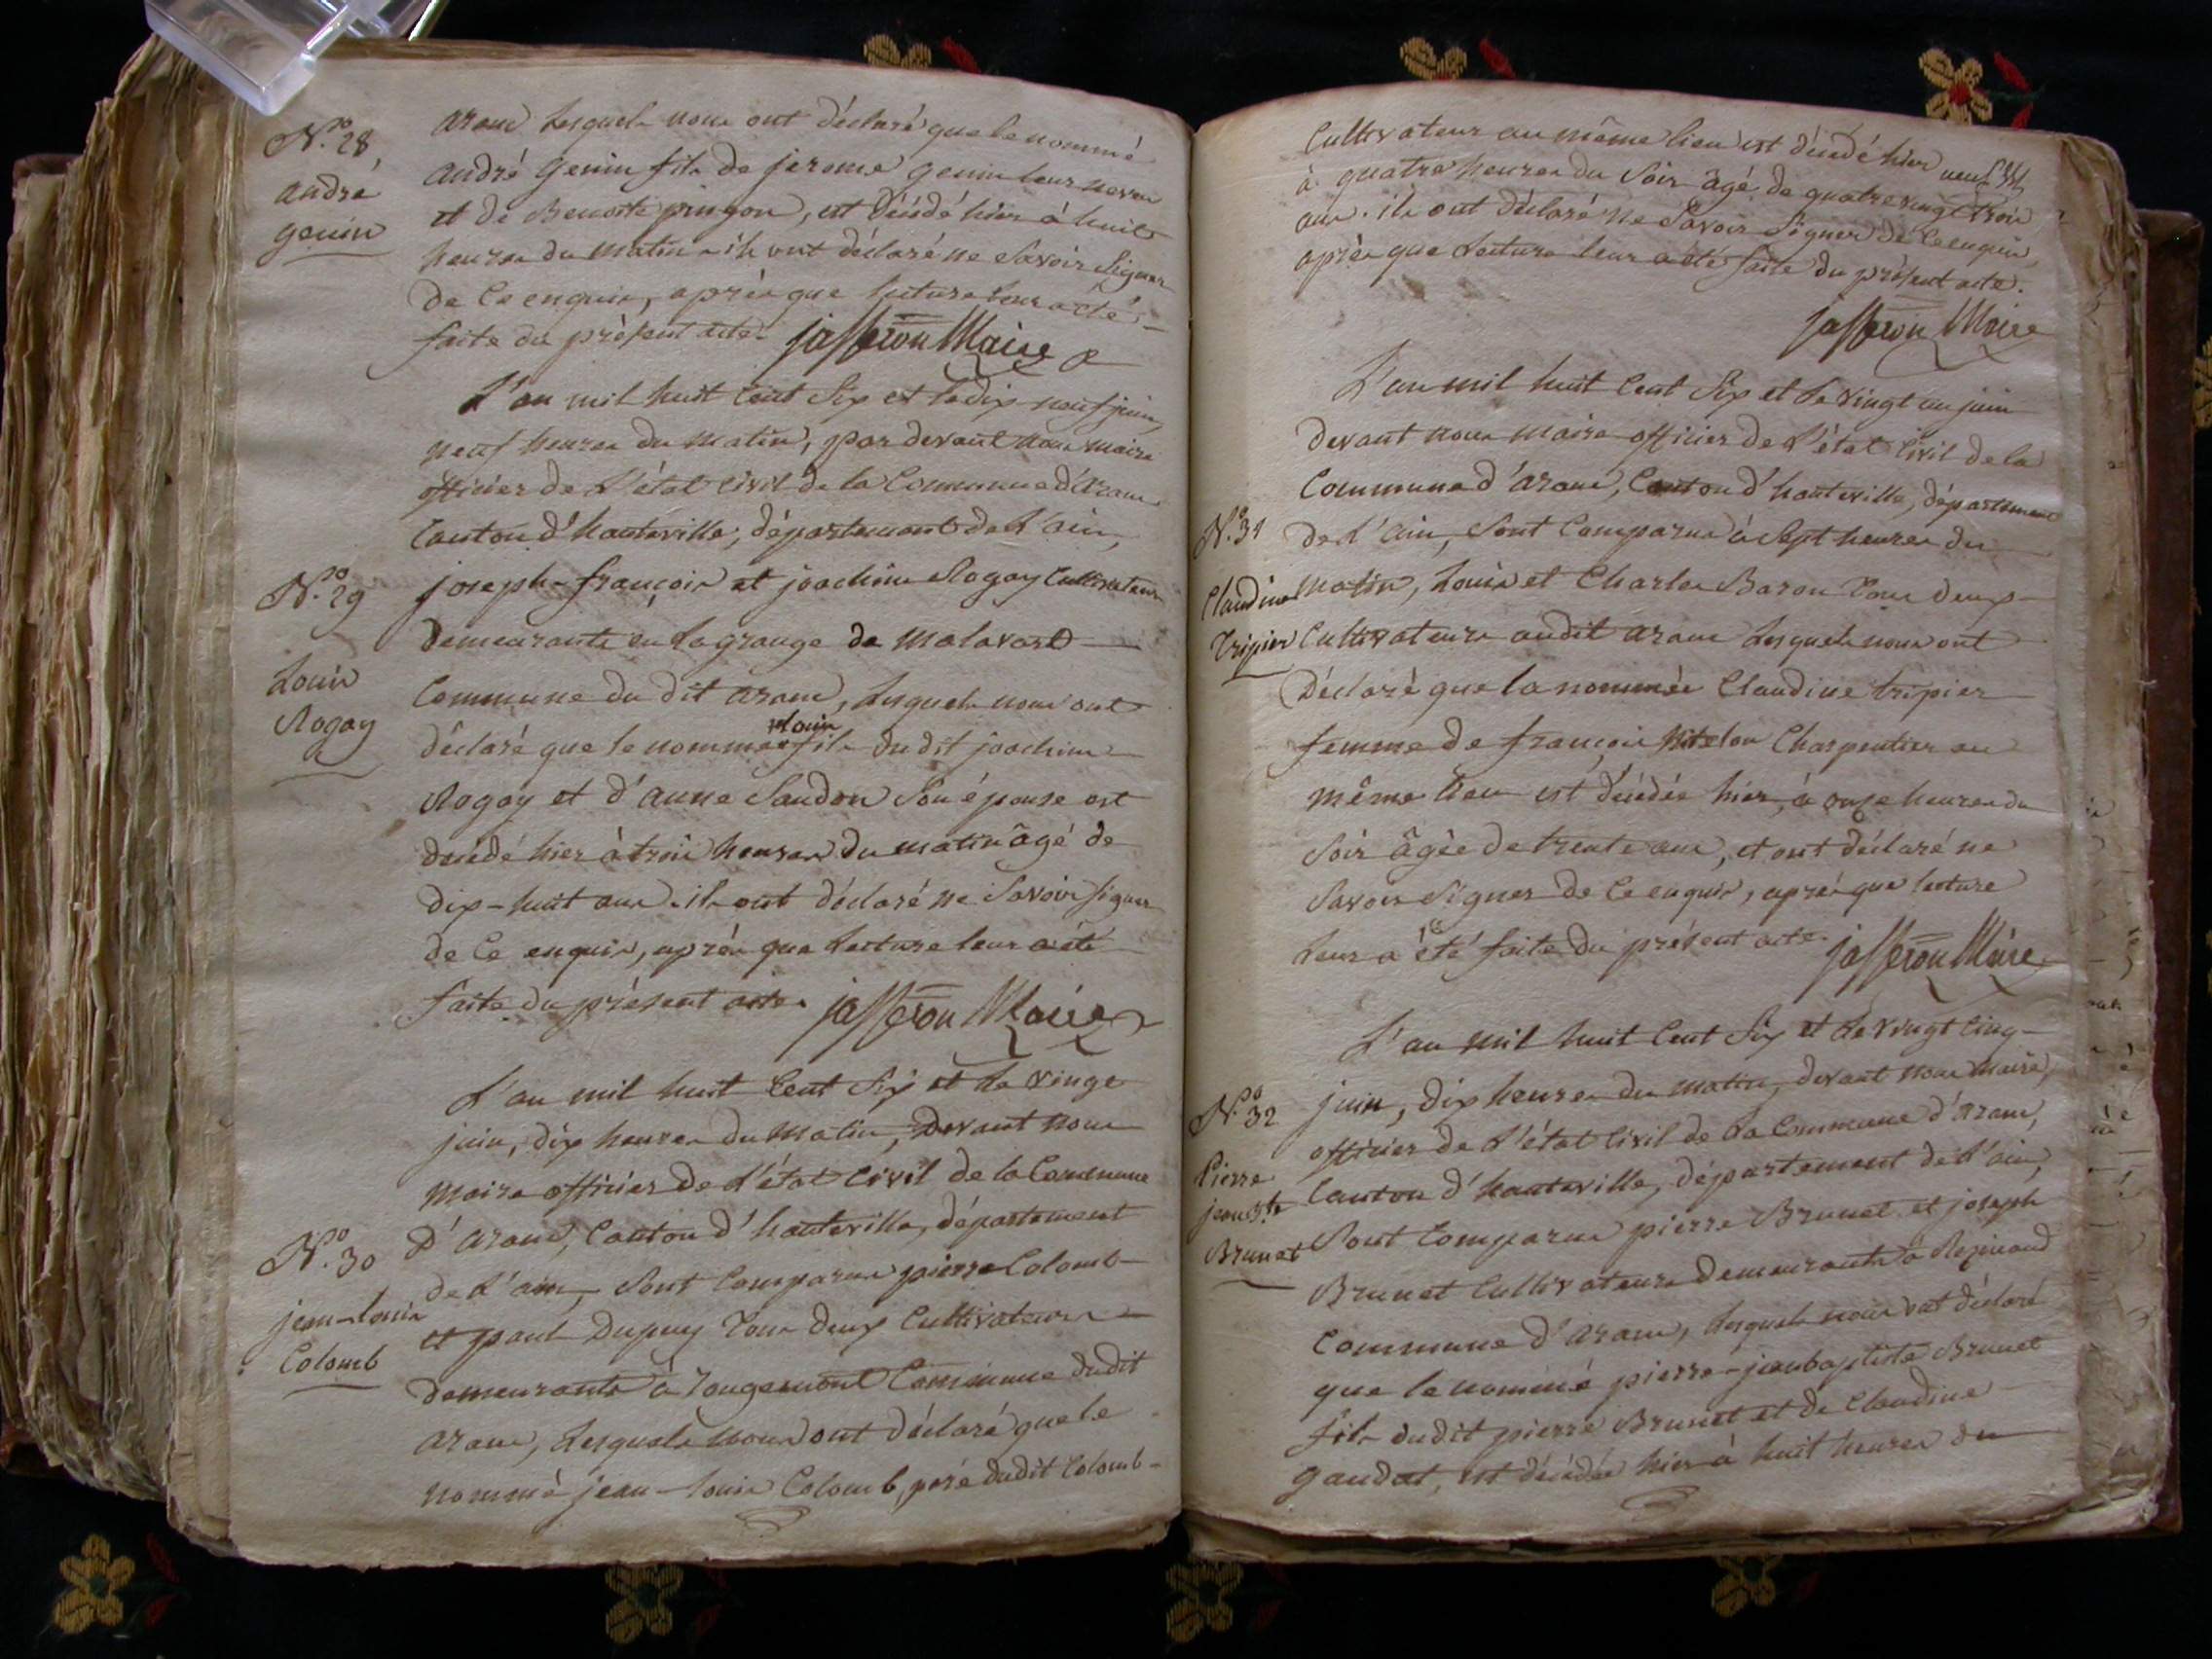 N.° 28
andré
genin
aranc lesquels nous ont déclaré que le nommé
andré genin fils de jerome genin leur neveu
et de Benoite pingon, est décédé hier à huit
heures du matin ils ont déclaré ne savoir signer
de ce enquis, après que lecture leur a été
faite du présent acte. jasseron Maire
L'an mil huit cent six et le dix neuf juin
neuf heures du matin, par devant nous maire
officier de l'état civil de la Commune d'Aranc
Canton d'hauteville, département de l'ain,
N.° 29
Louis
Rogay
joseph-françois et joachim Rogay Cultivateurs
demeurants en la grange de malavard
Commune du dit aranc, lesquels nous ont
déclaré que le nommé louis fils du dit joachim
Rogay et d'anne Sandon son épouse est
décédé hier à trois heures du matin âgé de
dix-huit ans. ils ont déclaré ne savoir signer
de ce enquis, après que lecture leur a été
faite du présent acte. jasseron Maire
L'an mil huit cent six et le vingt
juin, dix heures du matin, devant nous
maire officier de l'état civil de la Commune
N.° 30
jean-louis
Colomb
d'aranc, Canton d'hauteville, département
de l'ain, sont Comparus pierre Colomb
et paul Dupuy tous deux Cultivateurs
demeurants à rougemont Commune dudit
aranc, lesquels nous ont déclaré que le
nommé jean-louis Colomb, père dudit Colomb
Cultivateur au même lieu est décédé hier
à quatre heures du soir âgé de quatre vingt trois
ans. ils ont déclaré ne savoir signer de ce enquis
après que lecture leur a été faite du présent acte.
jasseron Maire
L'an mil huit cent six et le vingt un juin
devant nous maire officier de l'état civil de la
Commune d'aranc, Canton d'hauteville, département
N.° 31
Claudine
Tripier
de l'ain, sont Comparus à sept heures du
matin, Louis et Charles Baron tous deux
Cultivateurs audit aranc lesquels nous ont
déclaré que la nommée Claudine tripier
femme de françois Charpentier au
même lieu est décédée hier, à onze heures du
soir âgée de trente ans, et ont déclaré ne
savoir signer de ce enquis, après que lecture
leur a été faite du présent acte. jasseron Maire
L'an mil huit cent six et le vingt cinq
N.° 32
Pierre
jean Bte
Brunet
juin, dix heures du matin, devant nous maire,
officier de l'état civil de la Commune d'aranc,
Canton d'hauteville, département de l'ain,
sont Comparus pierre Brunet et joseph
Brunet Cultivateurs demeurants à Résinand
Commune d'aranc, lesquels nous ont déclaré
que le nommé pierre-jeanbaptiste Brunet
fils dudit pierre Brunet et de Claudine
gaudet, est décédé hier à huit heures du